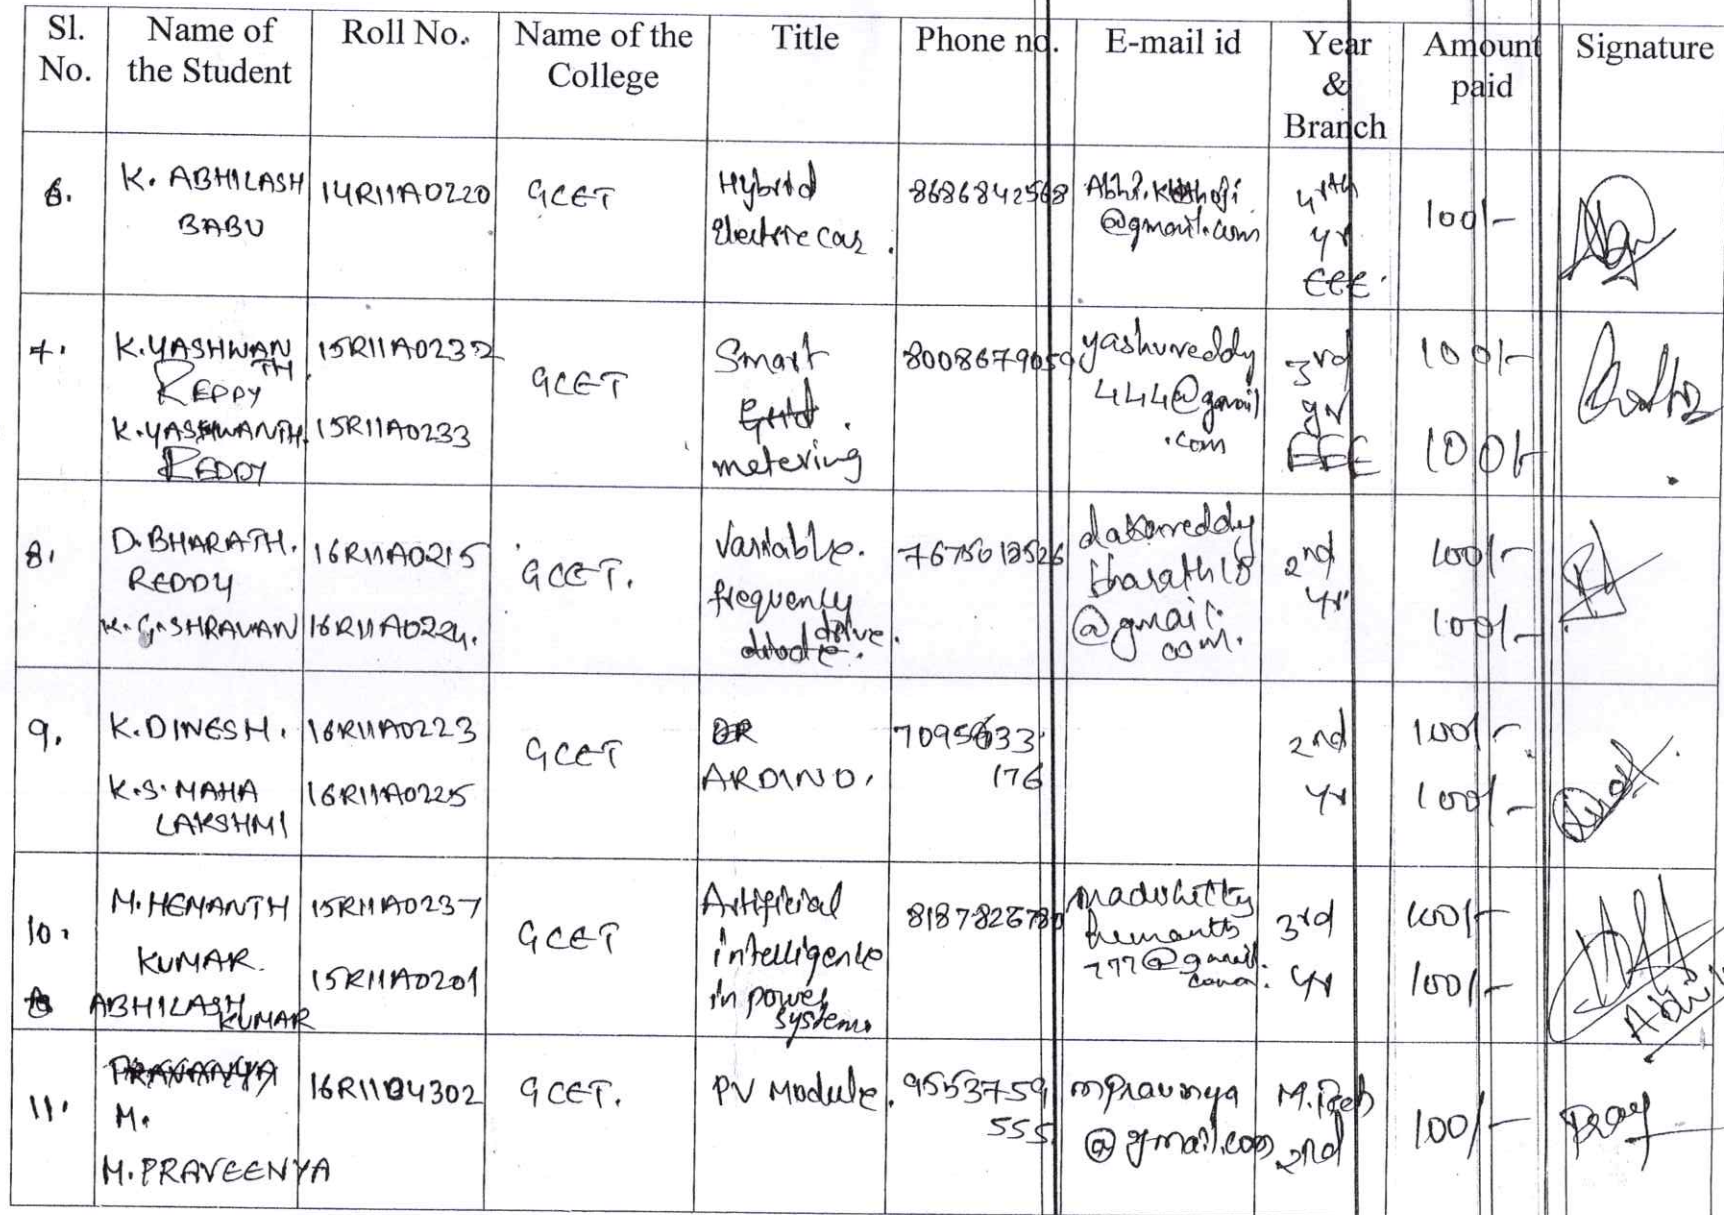 Sl. No.
Name of the Student
Roll No.
Name of the College
Title
Phone no.
E-mail id
Year & Branch
Amount paid
Signature
6.
K. ABHILASH
BABU
14R11A0220
GCET
Hybrid
Electric car.
8686842568
@gmail.com
4rth
yr
EEE.
100/-
7.
K.YASHWAN
TH
REDDY
K.YASHWANTH
REDDY
15R11A0232
15R11A0233
GCET
Smart
Grid.
metering
8008679059
yashureddy
444@gmail
.com
3rd
yr
EEE
100/-
100/-
8.
D.BHARATH.
REDDY
K.G.SHRAVAN
16R11A0215
16R11A0224.
GCET.
Variable.
frequency
drive.
@gmail.
com.
2nd
yr
100/-
100/-
9.
K.DINESH.
K.S.MAHA
LAKSHMI
16R11A0223
16R11A0225
GCET
ARDINO.
7095633
176
2nd
yr
100/-
100/-
10.
M.HEMANTH
KUMAR.
ABHILASH
KUMAR
15R11A0237
15R11A0201
GCET
Artificial
intelligence
in power
systems
8187826780
hemanth
777@gmail.
3rd
yr
100/-
100/-
11.
PRAVANYA
M.
M.PRAVEENYA
16R11D4302
GCET.
PV Module.
9553759
555
mpravinya
@gmail.com
M.Tech
2nd
100/-